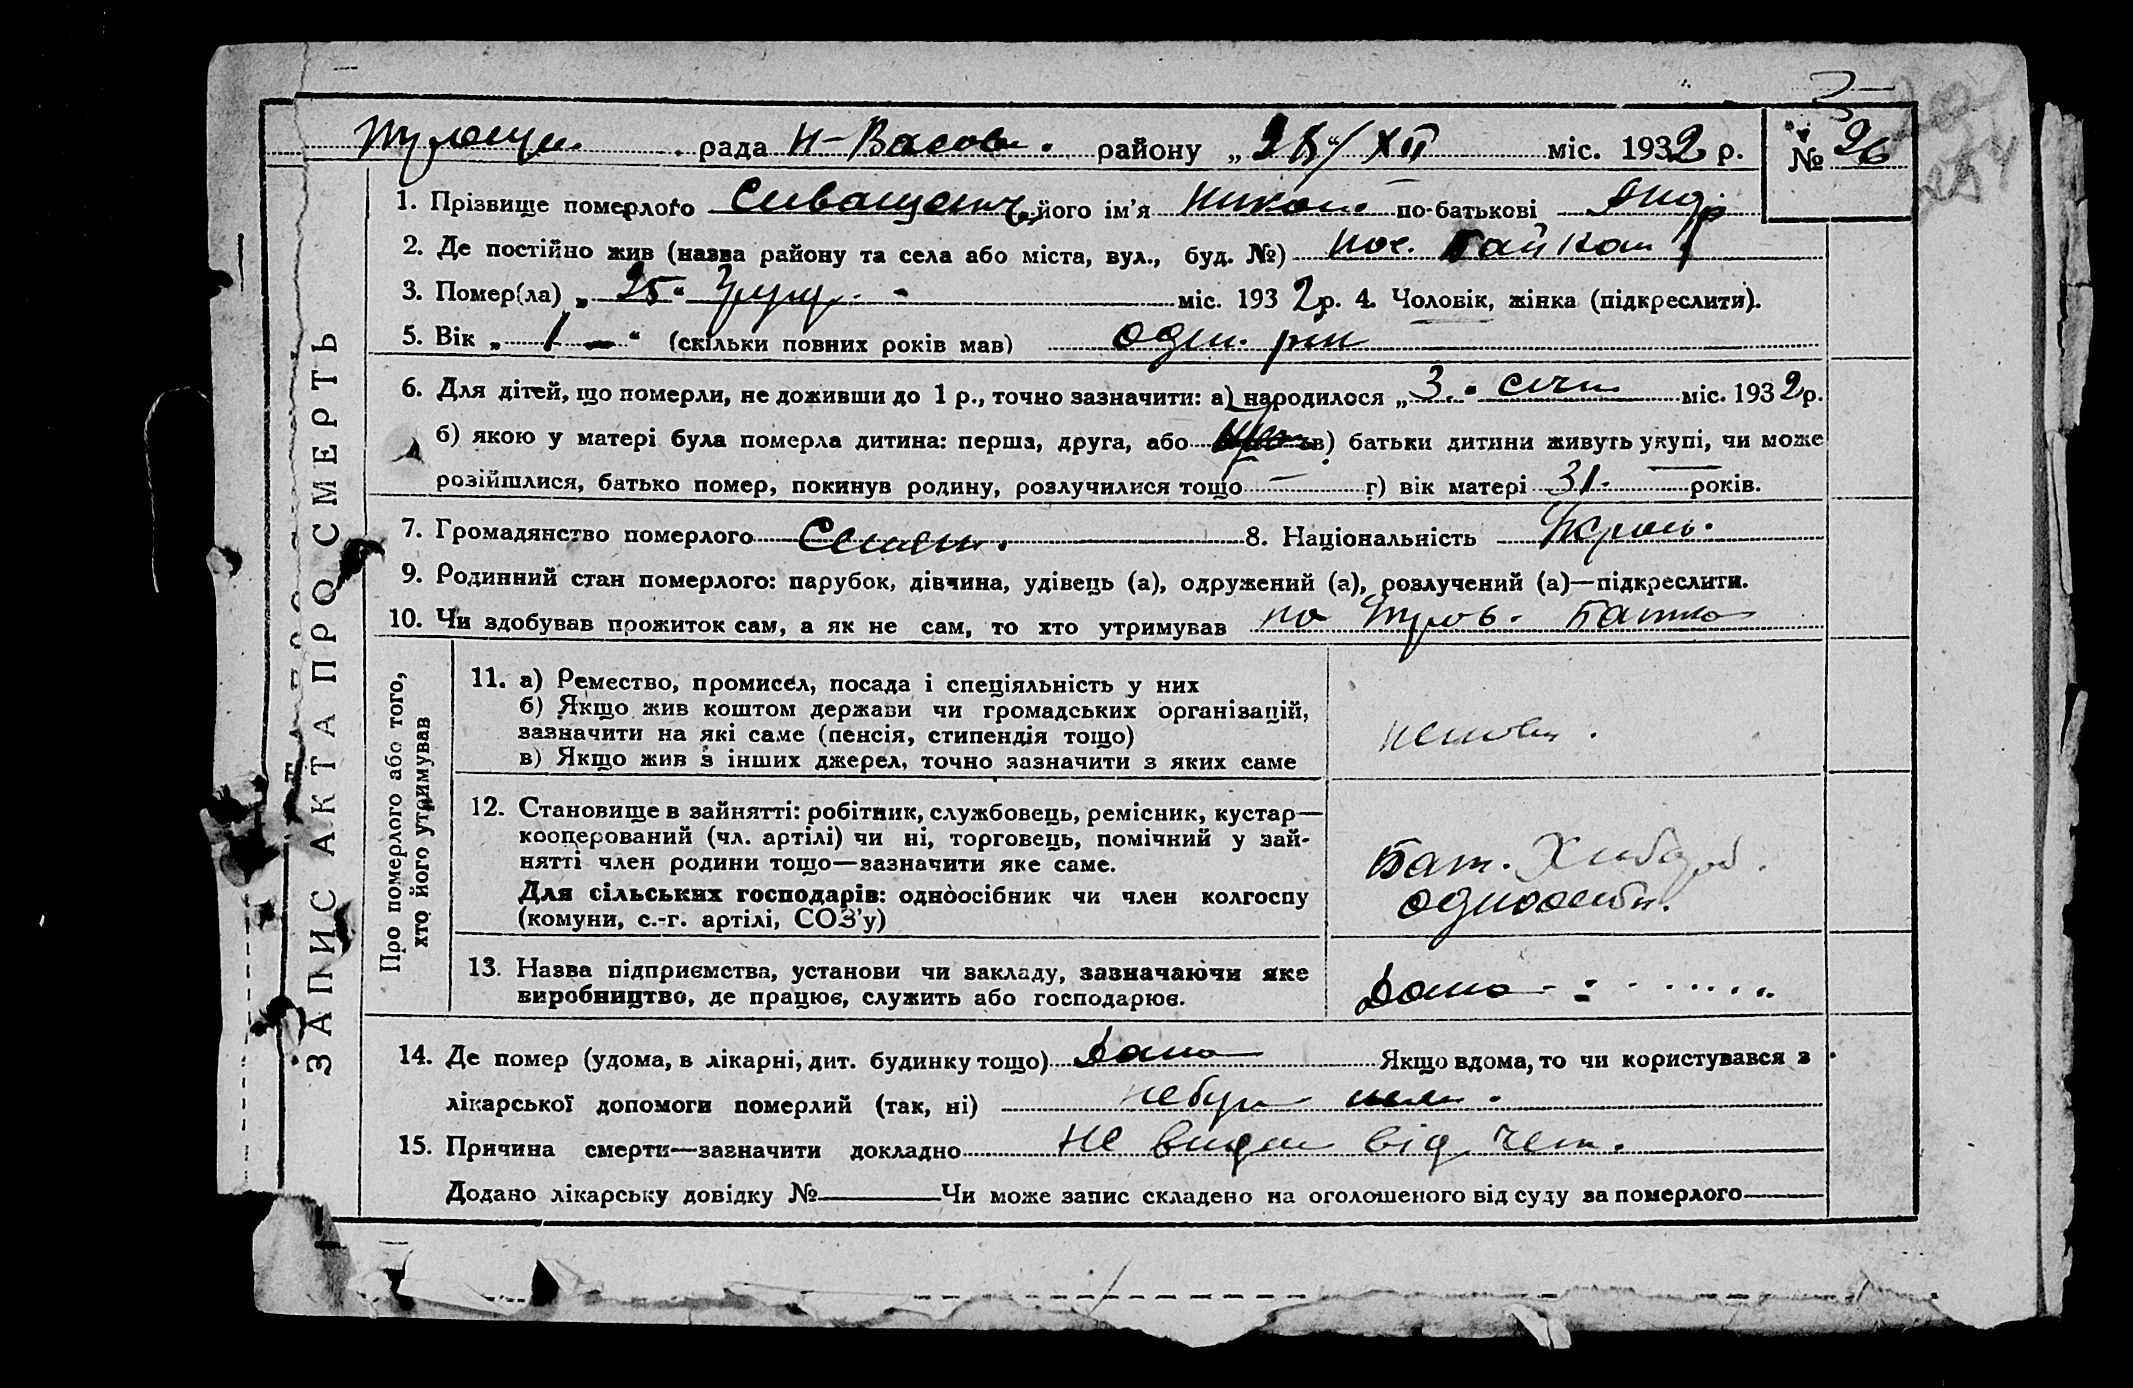 рада Н-Васов. району „28“/XII міс. 1932 р. № 26
1. Прізвище померлого його ім’я Никол. по-батькові Андр
2. Де постійно жив (назва району та села або міста, вул., буд. №) пос. Гайки
3. Помер(ла) „25“ Грудн. міс. 1932 р. 4. Чоловік, жінка (підкреслити).
5. Вік „1“ (скільки повних років мав) один рік
6. Для дітей, що померли, не доживши до 1 р., точно зазначити: а) народилося „3“ січн міс. 1932 р.
б) якою у матері була померла дитина: перша, друга, або в) батьки дитини живуть укупі, чи може
розійшлися, батько помер, покинув родину, розлучилися тощо — г) вік матері 31. років.
7. Громадянство померлого 8. Національність Украін.
9. Родинний стан померлого: парубок, дівчина, удівець (а), одружений (а), розлучений (а)—підкреслити.
10. Чи здобував прожиток сам, а як не сам, то хто утримував Батько
ЗАПИС АКТА ПРО СМЕРТЬ
Про померлого або того,
хто його утримував
11. а) Ремество, промисел, посада і спеціяльність у них
б) Якщо жив коштом держави чи громадських організацій,
зазначити на які саме (пенсія, стипендія тощо)
в) Якщо жив з інших джерел, точно зазначити з яких саме
12. Становище в зайнятті: робітник, службовець, ремісник, кустар—
кооперований (чл. артілі) чи ні, торговець, помічний у зай-
нятті член родини тощо—зазначити яке саме.
Для сільських господарів: одноосібник чи член колгоспу
(комуни, с.-г. артілі, СОЗ’у)
Бат. Хлібороб.
одноосібн.
13. Назва підприємства, установи чи закладу, зазначаючи яке
виробництво, де працює, служить або господарює.
Дома
14. Де помер (удома, в лікарні, дит. будинку тощо) Дома Якщо вдома, то чи користувався з
лікарської допомоги померлий (так, ні)
15. Причина смерти—зазначити докладно Не видом від чем.
Додано лікарську довідку № Чи може запис складено на оголошеного від суду за померлого